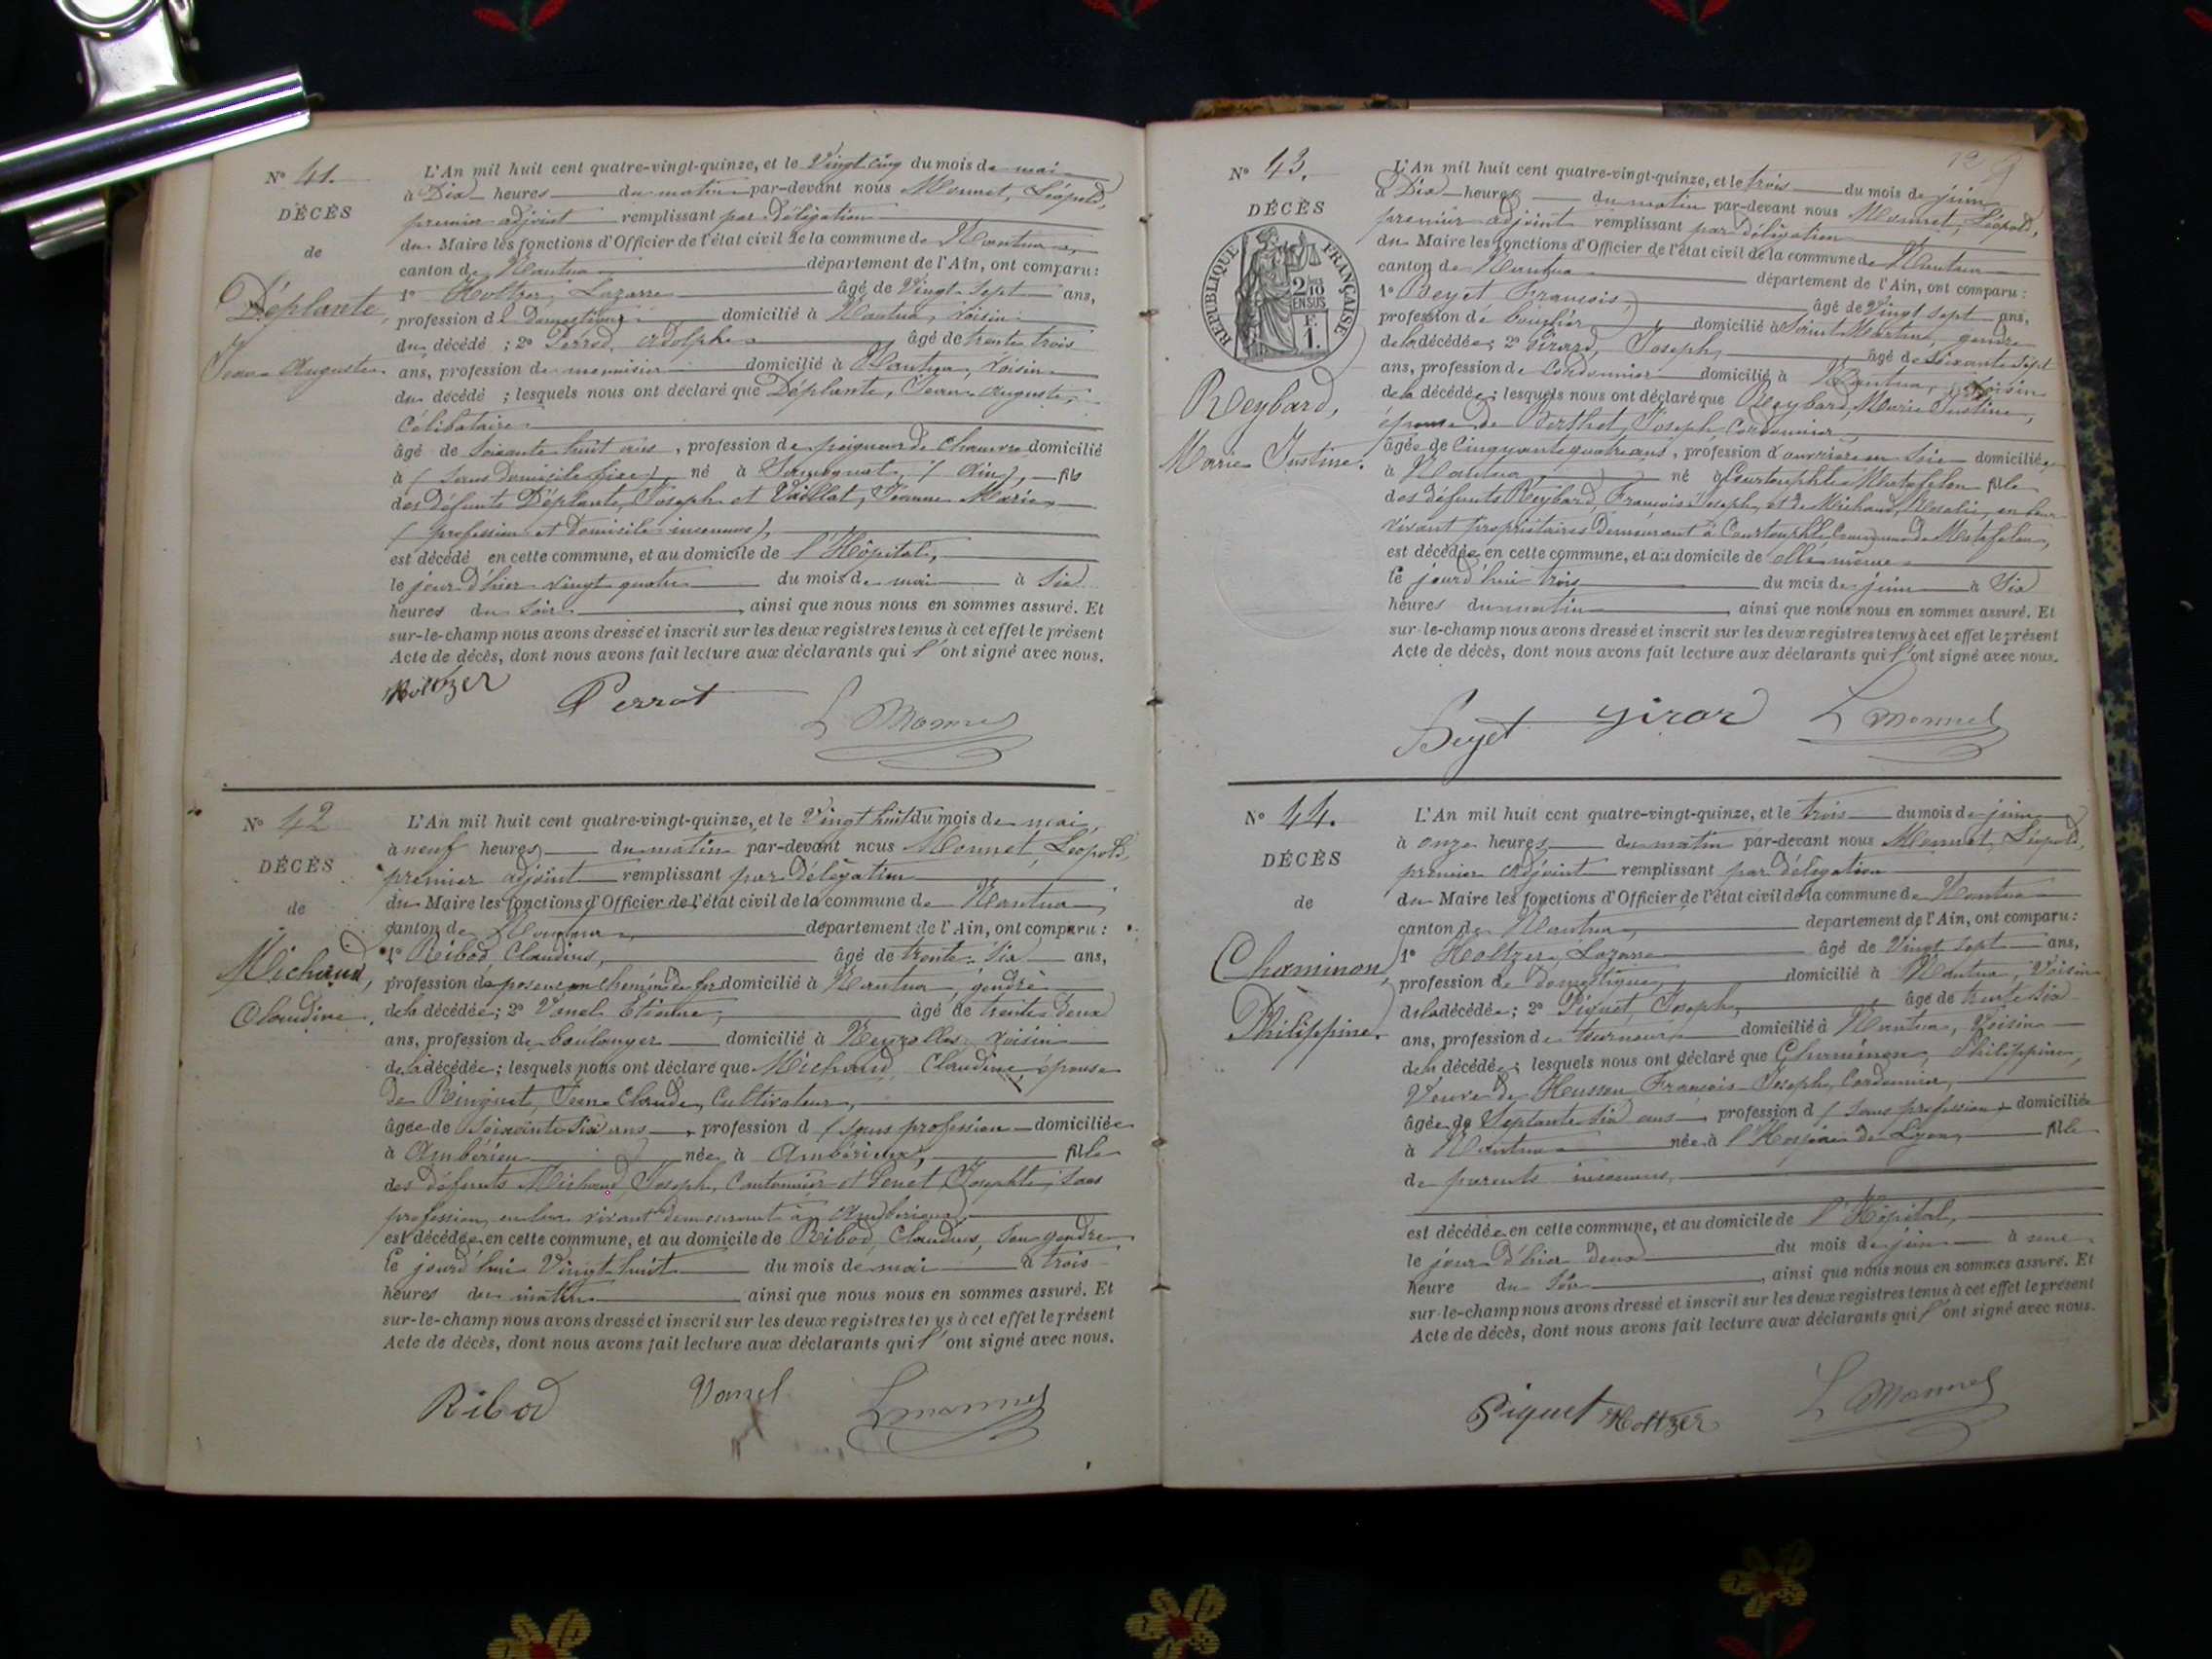 N° 41.
DÉCÈS
de
Déplante,
Jean Auguste
L'An mil huit cent quatre-vingt-quinze, et le Vingt cinq du mois de mai
à Dix heures du matin par-devant nous Monnet, Léopold,
premier adjoint remplissant par délégation
du Maire les fonctions d'Officier de l'état civil de la commune de Nantua,
canton de Nantua département de l'Ain, ont comparu :
1° Holtzer, Lazarre âgé de Vingt-sept ans,
profession de Domestique domicilié à Nantua, voisin
du décédé ; 2° Perrod, Adolphe âgé de trente trois
ans, profession de menuisier domicilié à Nantua, voisin
du décédé ; lesquels nous ont déclaré que Déplante, Jean Auguste,
Célibataire
âgé de Soixante huit ans, profession de peigneur de Chanvre domicilié
à (sans domicile fixe) né à (Ain), fils
des défunts Déplante, Joseph et Vaillat, Jeanne Marie
(profession et Domicile inconnus),
est décédé en cette commune, et au domicile de l'Hôpital,
le jour d'hier vingt quatre du mois de mai à Six
heures du soir, ainsi que nous nous en sommes assuré. Et
sur-le-champ nous avons dressé et inscrit sur les deux registres tenus à cet effet le présent
Acte de décès, dont nous avons fait lecture aux déclarants qui l'ont signé avec nous.
Holtzer Perrot L Monnet
N° 42
DÉCÈS
de
Michaud,
Claudine.
L'An mil huit cent quatre-vingt-quinze, et le Vingt huit du mois de mai,
à neuf heures du matin par-devant nous Monnet, Léopold,
premier adjoint remplissant par délégation
du Maire les fonctions d'Officier de l'état civil de la commune de Nantua,
canton de Nantua, département de l'Ain, ont comparu :
1° Ribod Claudius, âgé de trente-six ans,
profession de poseur en chemin de fer domicilié à Nantua, gendre
de la décédée ; 2° Vanel Etienne, âgé de trente deux
ans, profession de boulanger domicilié à Neyrolles voisin
de la décédée ; lesquels nous ont déclaré que Michaud Claudine, épouse
de Ringuet, Jean Claude, Cultivateur,
âgée de Soixante six ans, profession d (sans profession domiciliée
à Ambérieu née à Ambérieux, fille
des défunts Michaud, Joseph, Cantonnier et Josephte, sans
profession, en leur vivant demeurant à Ambérieux,
est décédée en cette commune, et au domicile de Ribod, Claudius, son gendre
le jourd'hui Vingt huit du mois de mai à trois
heures du matin ainsi que nous nous en sommes assuré. Et
sur-le-champ nous avons dressé et inscrit sur les deux registres tenus à cet effet le présent
Acte de décès, dont nous avons fait lecture aux déclarants qui l'ont signé avec nous.
Ribod Vanel L Monnet
N° 43.
DÉCÈS
RÉPUBLIQUE FRANÇAISE
2/10 EN SUS
Reybard,
Marie Justine.
L'An mil huit cent quatre-vingt-quinze, et le trois du mois de juin
à Dix heures du matin par-devant nous Monnet, Léopold,
premier adjoint remplissant par délégation
du Maire les fonctions d'Officier de l'état civil de la commune de Nantua
canton de Nantua département de l'Ain, ont comparu :
1° Beyet François, âgé de Vingt sept ans,
profession de domicilié à Saint Martin, gendre
de la décédée ; 2° Girard, Joseph, âgé de Soixante sept
ans, profession de Cordonnier domicilié à Nantua, voisin
de la décédée ; lesquels nous ont déclaré que Reybard, Marie Justine,
épouse de Berthet, Joseph, Cordonnier,
âgée de Cinquante quatre ans, profession d'ouvrière en Soie domiciliée
à Nantua né à Courtouphle Matafelon fille
des défunts Reybard, François Joseph, et de Michaud, Rosalie, en leur
vivant propriétaires demeurant à Courtouphle Commune de Matafelon,
est décédée en cette commune, et au domicile de elle même
le jourd'hui trois du mois de juin à Six
heures du matin, ainsi que nous nous en sommes assuré. Et
sur-le-champ nous avons dressé et inscrit sur les deux registres tenus à cet effet le présent
Acte de décès, dont nous avons fait lecture aux déclarants qui l'ont signé avec nous.
Beyet Girar L Monnet
N° 44.
DÉCÈS
de
Chaminon,
Philippine.
L'An mil huit cent quatre-vingt-quinze, et le trois du mois de juin
à onze heures du matin par-devant nous Monnet, Léopold,
premier adjoint remplissant par délégation
du Maire les fonctions d'Officier de l'état civil de la commune de Nantua
canton de Nantua, département de l'Ain, ont comparu :
1° Holtzer, Lazarre âgé de Vingt sept ans,
profession de Domestique, domicilié à Nantua, Voisin
de la décédée ; 2° Piquet, Joseph, âgé de trente six
ans, profession de tourneur, domicilié à Nantua, Voisin
de la décédée ; lesquels nous ont déclaré que Chaminon, Philippine,
Veuve de Husson François Joseph, Cordonnier,
âgée de Septante six ans, profession d (sans profession) domiciliée
à Nantua née à l'Hospice de Lyon, fille
de parents inconnus,
est décédée en cette commune, et au domicile de l'Hôpital,
le jour d'hier deux du mois de juin à une
heure du Soir, ainsi que nous nous en sommes assuré. Et
sur-le-champ nous avons dressé et inscrit sur les deux registres tenus à cet effet le présent
Acte de décès, dont nous avons fait lecture aux déclarants qui l'ont signé avec nous.
Piquet Holtzer L Monnet